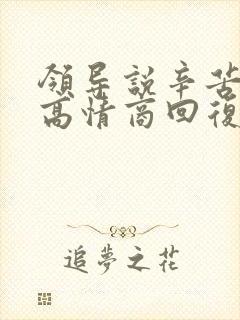 領导說辛苦
高情商回復
追夢之花